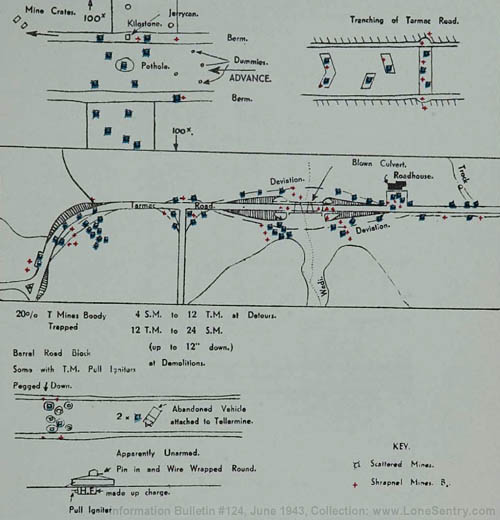 Mine Crates.
100ˣ
Jerrycan.
Kilostone.
Berm.
Dummies.
Pothole.
ADVANCE.
Berm.
100ˣ.
Trenching of Tarmac Road.
Blown Culvert.
Roadhouse.
Track
Deviation.
Tarmac Road.
Deviation.
Wadi
20% T Mines Booby
Trapped
4 S.M. to 12 T.M. at Detours.
12 T.M. to 24 S.M.
(up to 12" down.)
at Demolitions.
Barrel Road Block
Some with T.M. Pull Igniters
Pegged Down.
2 x
Abandoned Vehicle
attached to Tellermine.
Apparently Unarmed.
Pin in and Wire Wrapped Round.
H.E. made up charge.
Pull Igniter
KEY.
Scattered Mines.
Shrapnel Mines.
Information Bulletin #124, June 1943, Collection: www.LoneSentry.com